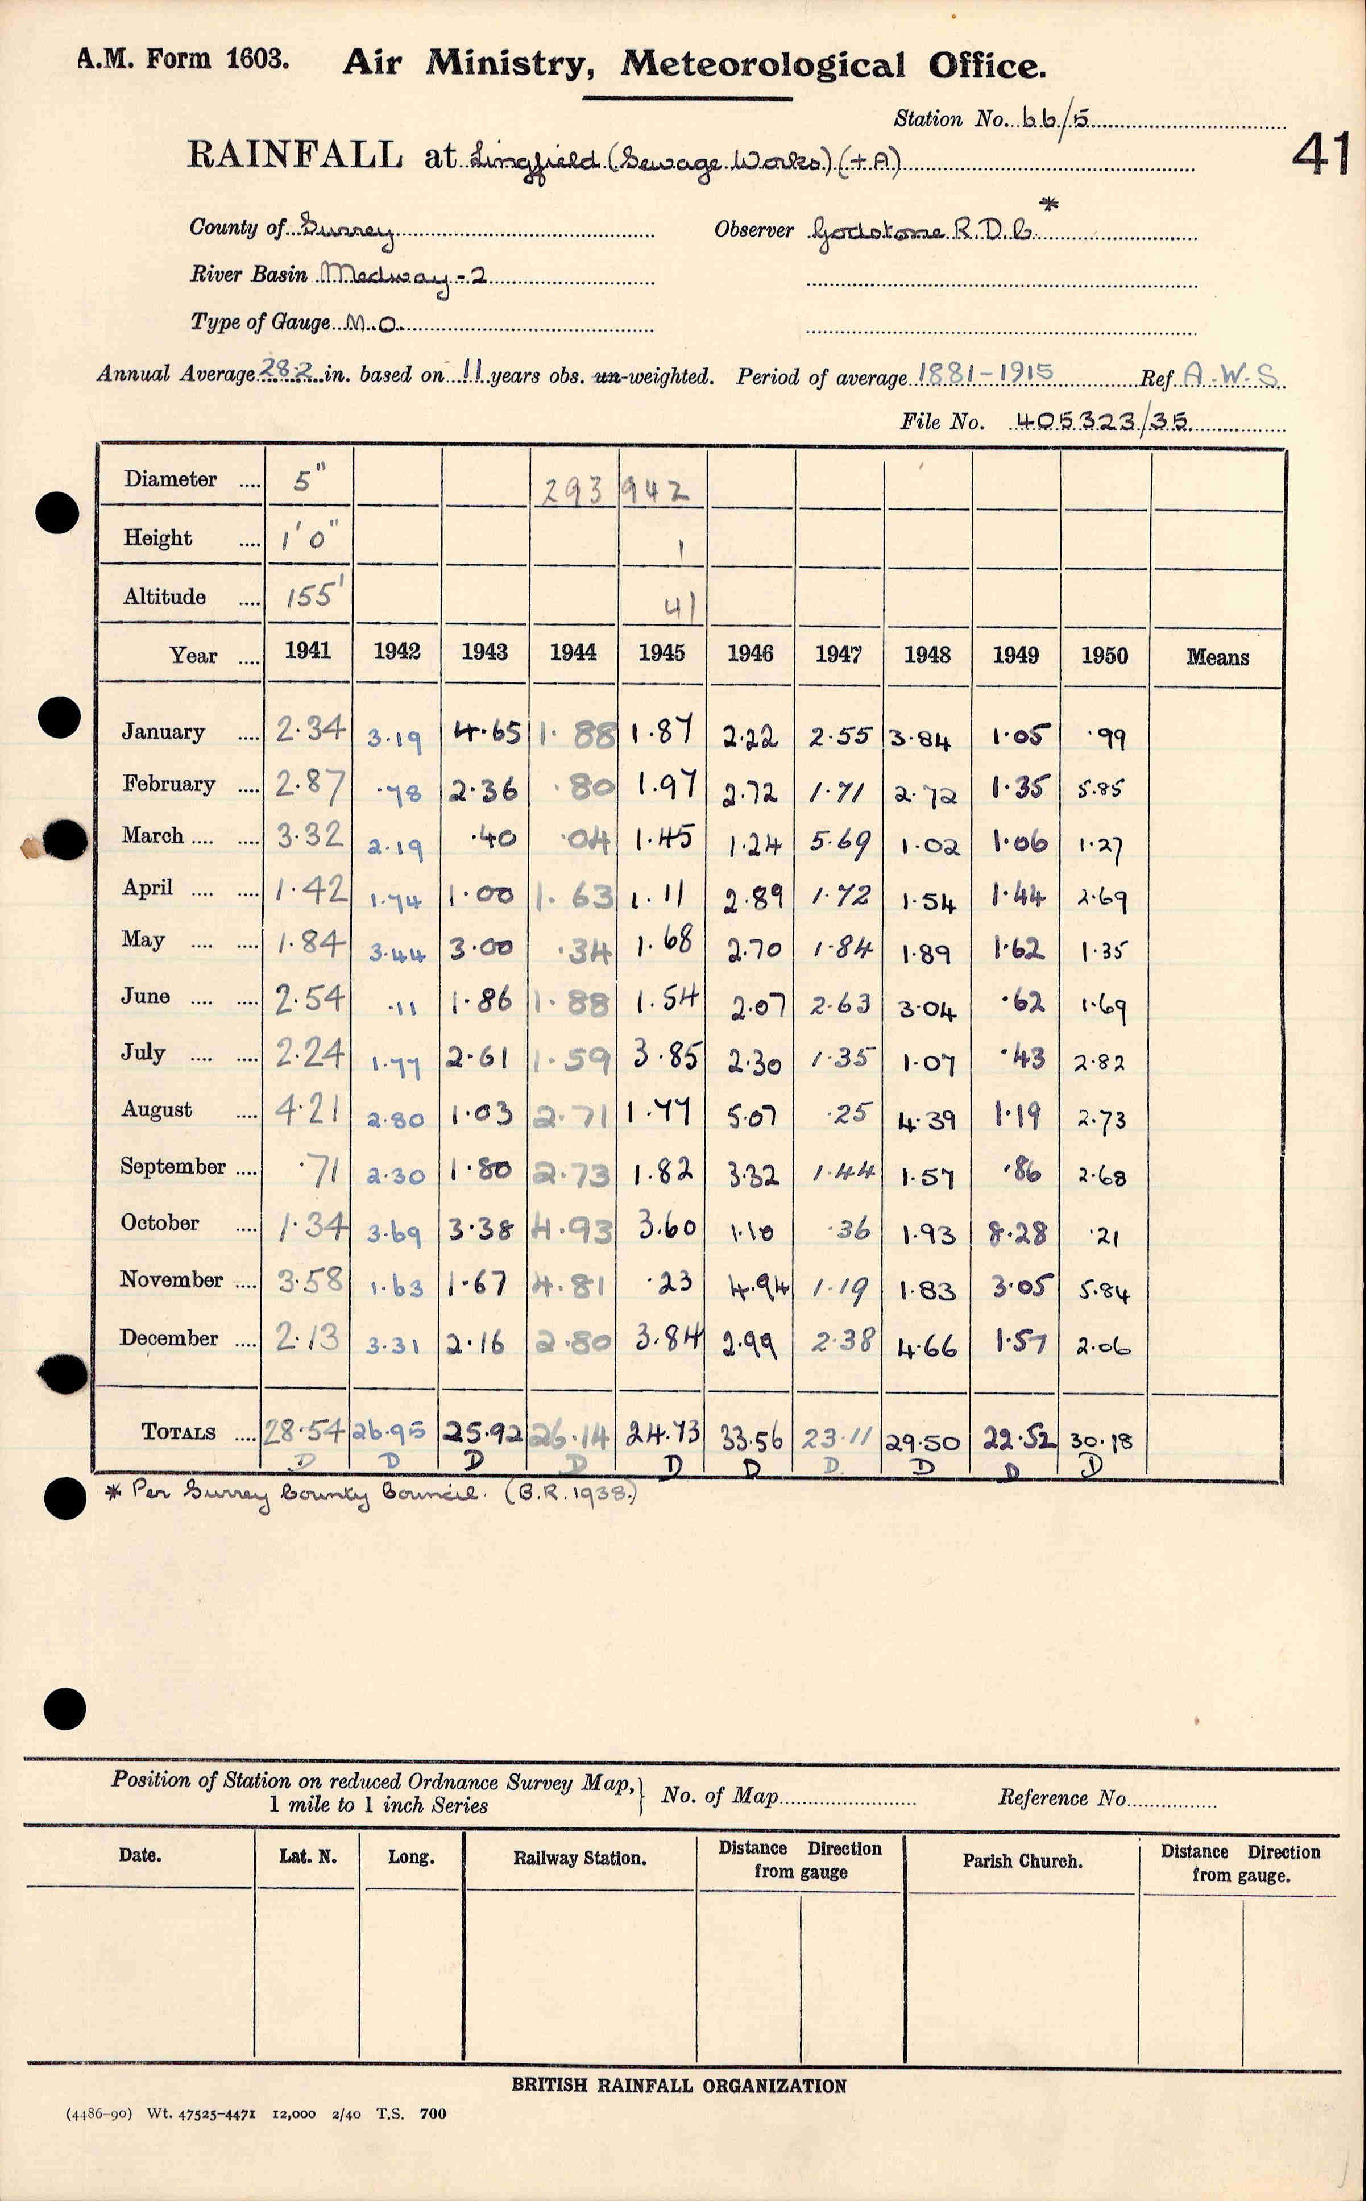 A.M. Form 1603. Air Ministry, Meteorological Office.
Station No. 66/5
41
RAINFALL at Lingfield (Sewage Works) (+A)
*
County of Surrey Observer Godstone R.D.C.
River Basin Medway - 2
Type of Gauge M.O.
Annual Average 28.2 in. based on 11 years obs. un-weighted. Period of average 1881-1915 Ref A.W.S.
File No. 405323/35
Diameter .... 5" 293 942
Height .... 1' 0" 1
Altitude .... 155' 41
Year .... 1941 1942 1943 1944 1945 1946 1947 1948 1949 1950 Means
January .... 2.34 3.19 4.65 1.88 1.87 2.22 2.55 3.84 1.05 .99
February .... 2.87 .78 2.36 .80 1.97 2.72 1.71 2.72 1.35 5.85
March .... .... 3.32 2.19 .40 .04 1.45 1.24 5.69 1.02 1.06 1.27
April .... .... 1.42 1.74 1.00 1.63 1.11 2.89 1.72 1.54 1.44 2.69
May .... .... 1.84 3.44 3.00 .34 1.68 2.70 1.84 1.89 1.62 1.35
June .... .... 2.54 .11 1.86 1.88 1.54 2.07 2.63 3.04 .62 1.69
July .... .... 2.24 1.77 2.61 1.59 3.85 2.30 1.35 1.07 .43 2.82
August .... 4.21 2.80 1.03 2.71 1.77 5.07 .25 4.39 1.19 2.73
September .... .71 2.30 1.80 2.73 1.82 3.32 1.44 1.57 .86 2.68
October .... 1.34 3.69 3.38 4.93 3.60 1.10 .36 1.93 8.28 .21
November .... 3.58 1.63 1.67 4.81 .23 4.94 1.19 1.83 3.05 5.84
December .... 2.13 3.31 2.16 2.80 3.84 2.99 2.38 4.66 1.57 2.06
TOTALS .... 28.54 26.95 25.92 26.14 24.73 33.56 23.11 29.50 22.52 30.18
D D D D D D D D D D
* Per Surrey County Council. (B.R. 1938.)
Position of Station on reduced Ordnance Survey Map, } No. of Map Reference No.
1 mile to 1 inch Series
Date. Lat. N. Long. Railway Station. Distance Direction from gauge Parish Church. Distance Direction from gauge.
BRITISH RAINFALL ORGANIZATION
(4486-90) Wt. 47525-4471 12,000 2/40 T.S. 700